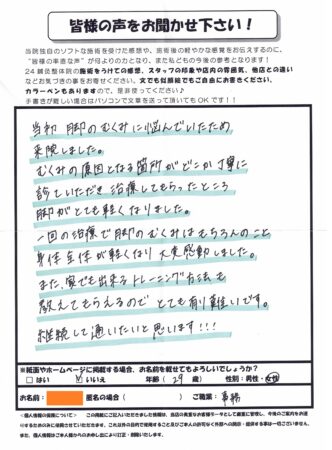 皆様の声をお聞かせ下さい!
当院独自のソフトな施術を受けた感想や、施術後の軽やかな感覚をお伝えするのに、
"皆様の率直な声"が何よりのちからとなり、また私どもの今後の参考となります!
24鍼灸整体院の施術をうけての感想、スタッフの印象や店内の雰囲気、他店との違い
などお気づきの事をお寄せください。文でも似顔絵でもご自由にお書きください、
カラーペンもありますので、是非使ってください♪
手書きが厳しい場合はパソコンで文章を送って頂いてもOKです!!
当初 脚のむくみに悩んでいたため
来院しました。
むくみの原因となる箇所がどこか丁寧に
診ていただき 治療してもらったところ
脚がとても軽くなりました。
一回の治療で脚のむくみはもちろんのこと
身体全体が軽くなり 大変感動しました。
また、家でも出来るトレーニング方法も
教えてもらえるので とても有り難いです。
継続して通いたいと思います!!!
※紙面やホームページに掲載する場合、お名前を載せてもよろしいでしょうか?
□はい ☑いいえ 年齢( 29 歳) 性別:男性・女性
お名前: 匿名の場合( ) ご職業: 事務
<個人情報の保護について> このご掲にご記入いただきました情報は、当店の貴重なお客様データとして厳重に管理し、今後のご案内をお送り
するためのみに使用させていただきます。これ以外の目的で使用すること及びご本人の許可なく外部への開示・提供する事は一切ございません。
また、個人情報はご本人様からのお申し出により訂正・削除いたします。